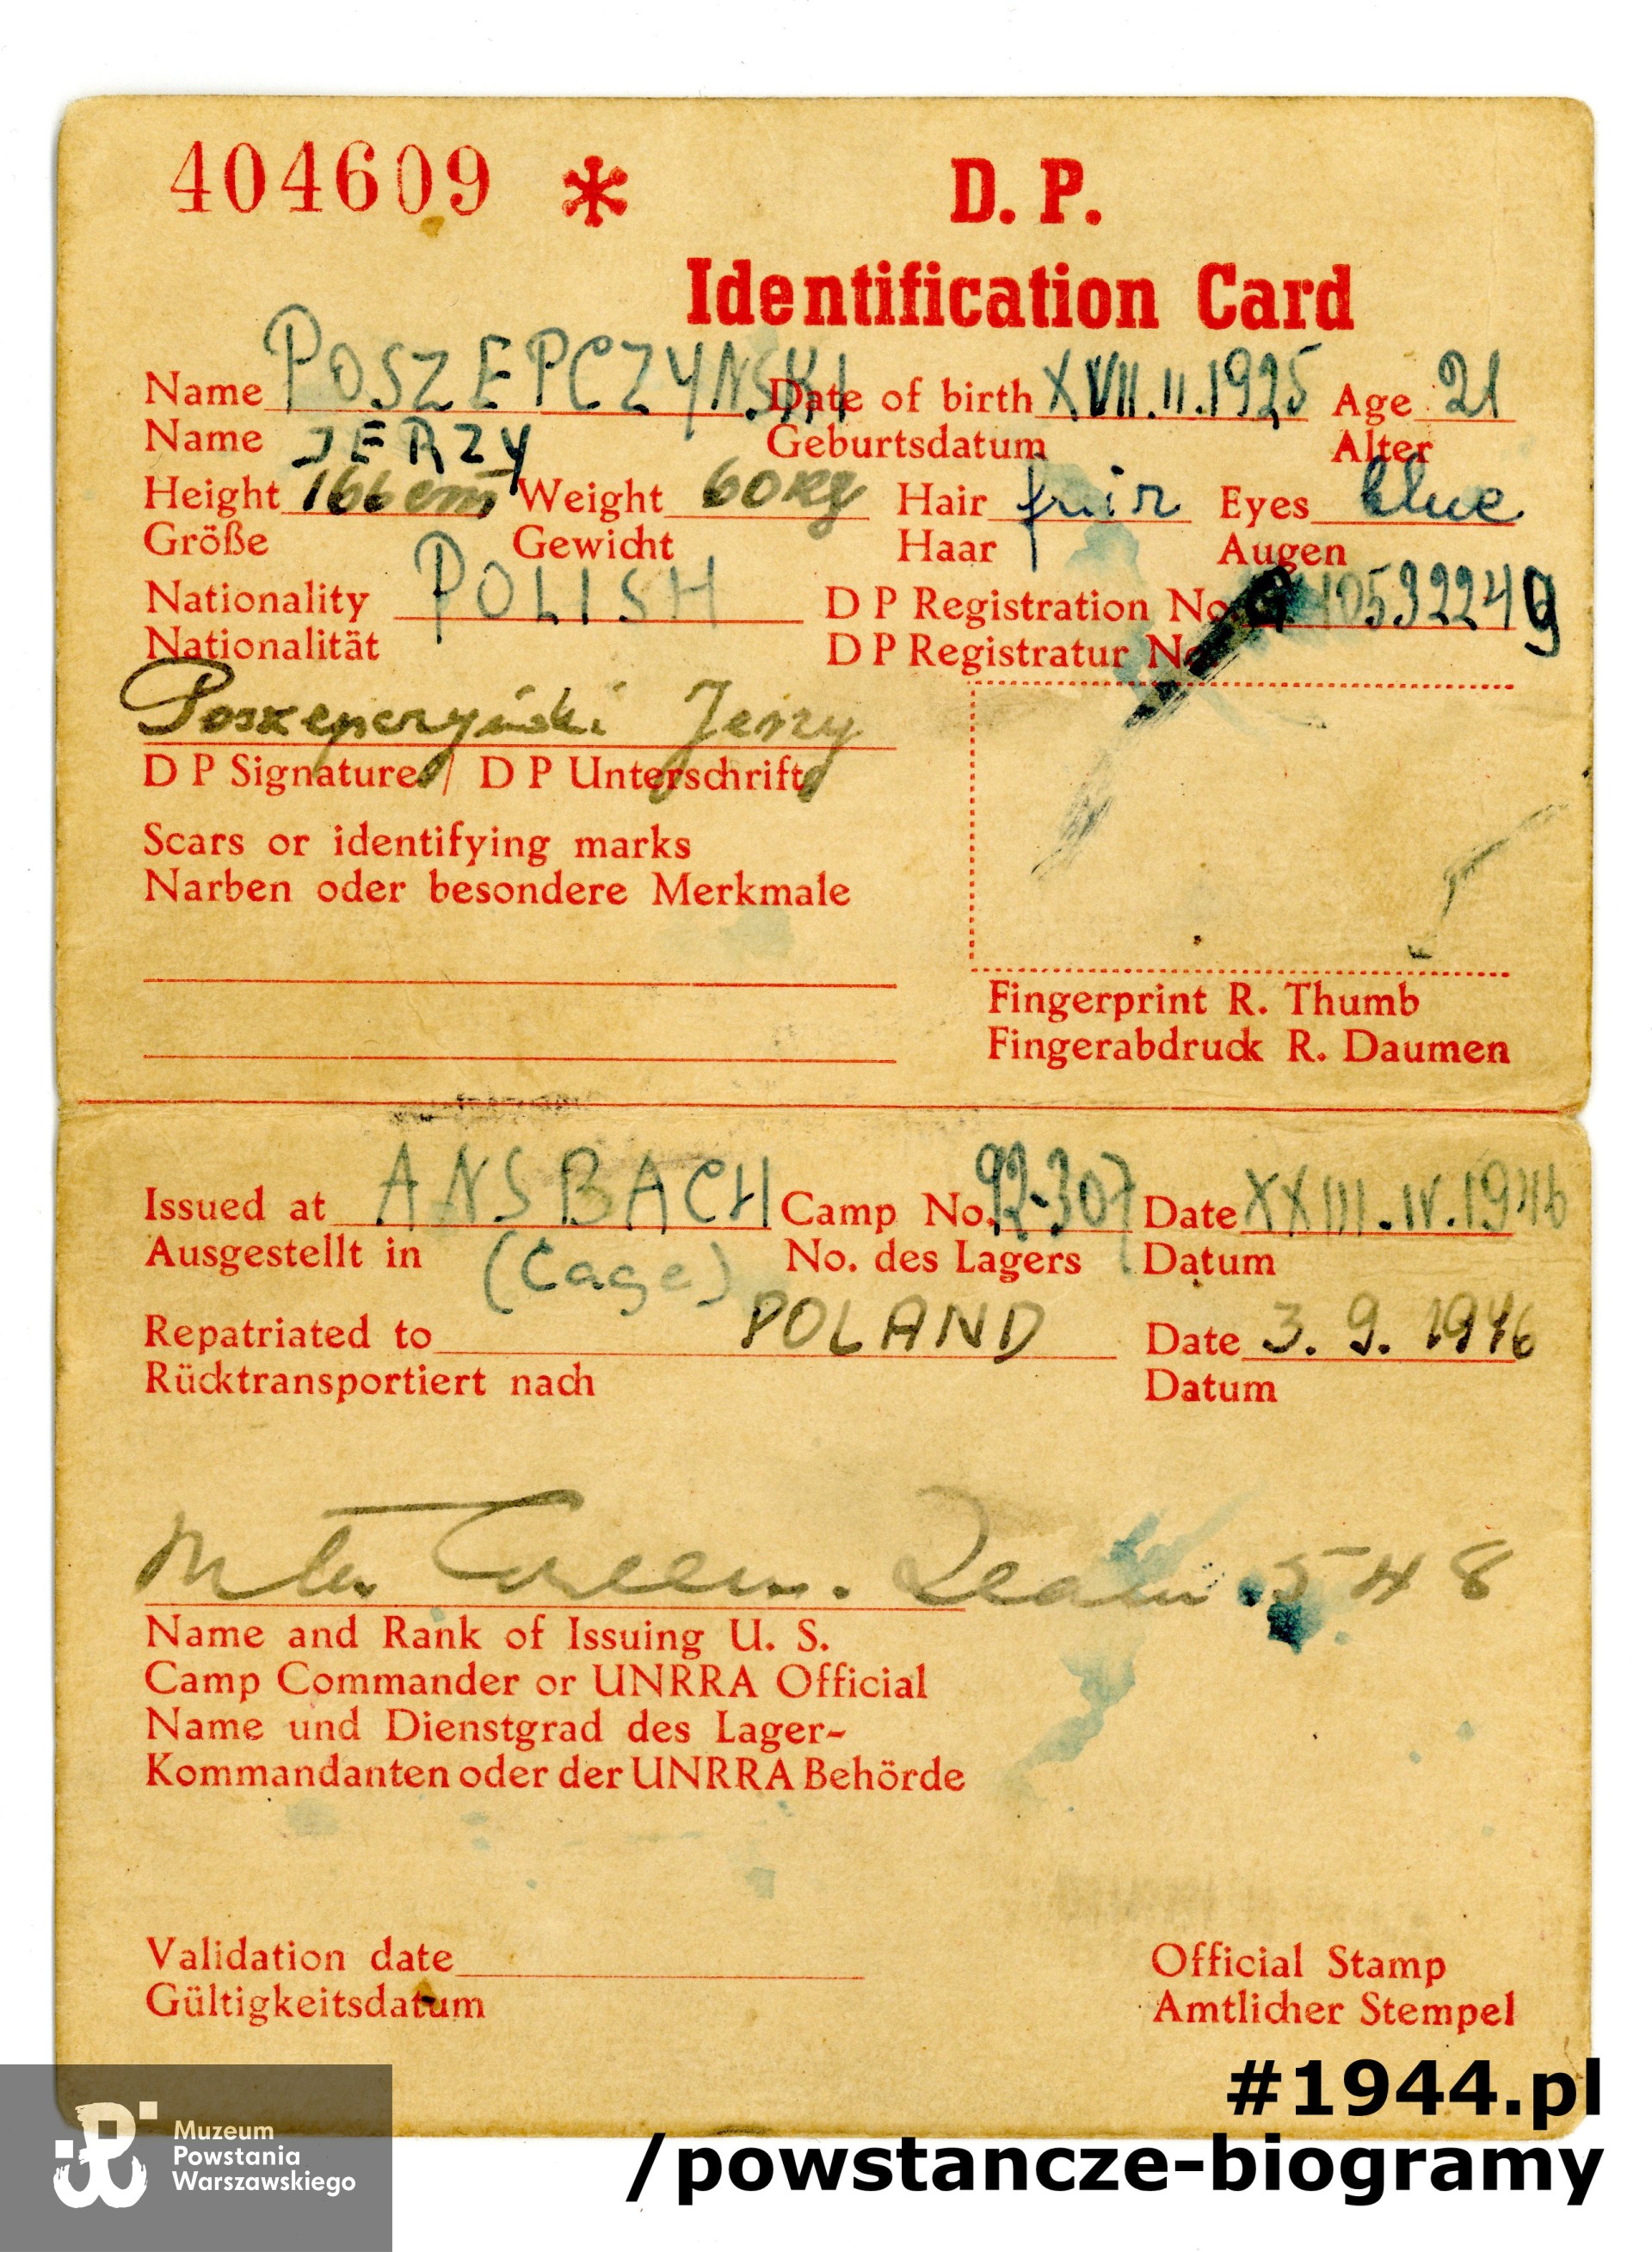 404609 * D. P.
Identification Card
Name POSZEPCZYNSKI Date of birth XVII.II.1925 Age 21
Name JERZY Geburtsdatum Alter
Height 166cm Weight 60kg Hair fair Eyes blue
Größe Gewicht Haar Augen
Nationality POLISH D P Registration No. 10532249
Nationalität D P Registratur No.
Poszepczyński Jerzy
D P Signature / D P Unterschrift
Scars or identifying marks
Narben oder besondere Merkmale
Fingerprint R. Thumb
Fingerabdruck R. Daumen
Issued at ANSBACH Camp No. 92-307 Date XXIII.IV.1946
Ausgestellt in (Cage) No. des Lagers Datum
Repatriated to POLAND Date 3. 9. 1946
Rücktransportiert nach Datum
548
Name and Rank of Issuing U. S.
Camp Commander or UNRRA Official
Name und Dienstgrad des Lager-
Kommandanten oder der UNRRA Behörde
Validation date Official Stamp
Gültigkeitsdatum Amtlicher Stempel
#1944.pl
/powstancze-biogramy
Muzeum
Powstania
Warszawskiego